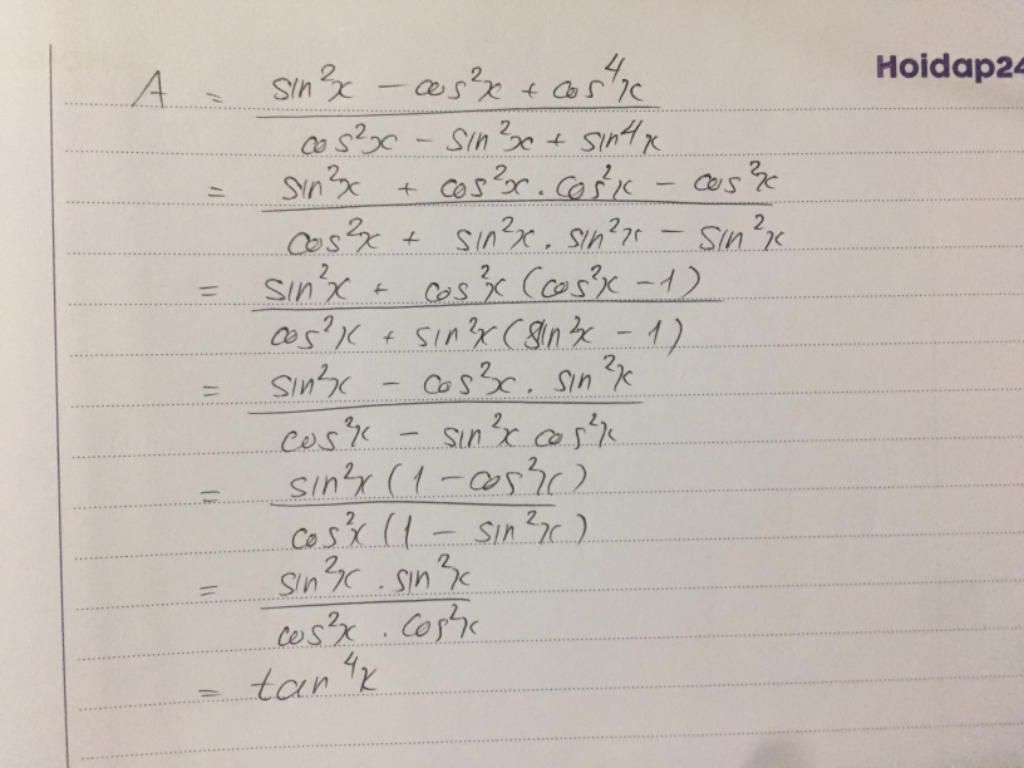 Hoidap24
A = (sin²x - cos²x + cos⁴x) / (cos²x - sin²x + sin⁴x)
= (sin²x + cos²x . cos²x - cos²x) / (cos²x + sin²x . sin²x - sin²x)
= (sin²x + cos²x (cos²x - 1)) / (cos²x + sin²x (sin²x - 1))
= (sin²x - cos²x . sin²x) / (cos²x - sin²x cos²x)
= (sin²x (1 - cos²x)) / (cos²x (1 - sin²x))
= (sin²x . sin²x) / (cos²x . cos²x)
= tan⁴x